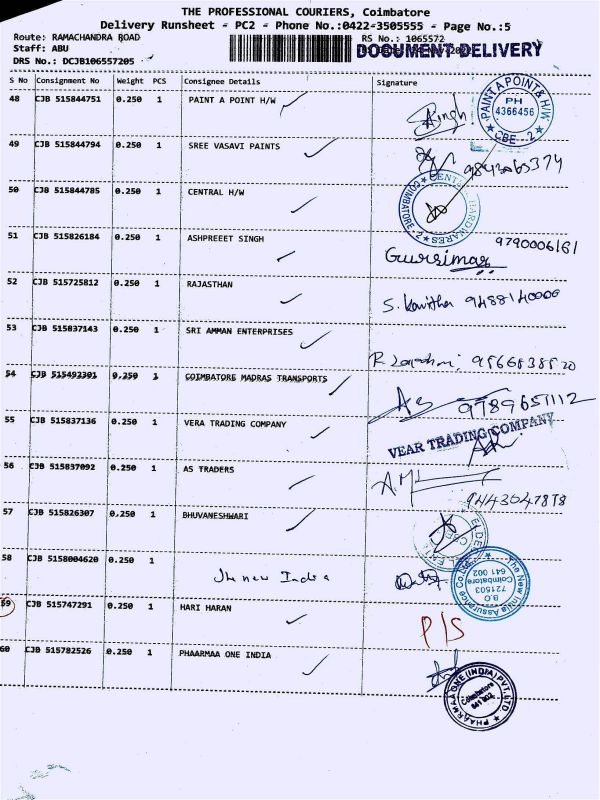 THE PROFESSIONAL COURIERS, Coimbatore
Delivery Runsheet - PC2 - Phone No.:0422-3505555 - Page No.:5
Route: RAMACHANDRA ROAD
RS No.: 1065572
Staff: ABU
DOCUMENT DELIVERY
DRS No.: DCJB106557205
S No Consignment No Weight PCS Consignee Details Signature
48 CJB 515844751 0.250 1 PAINT A POINT H/W Singh
PAINT A POINT & H/W PH 4366456 CBE - 2
49 CJB 515844794 0.250 1 SREE VASAVI PAINTS 9843065374
50 CJB 515844785 0.250 1 CENTRAL H/W
HARDWARES COIMBATORE-2
51 CJB 515826184 0.250 1 ASHPREEET SINGH Gursimar 9790006181
52 CJB 515725812 0.250 1 RAJASTHAN S. Kavitha 9488140006
53 CJB 515837143 0.250 1 SRI AMMAN ENTERPRISES
54 CJB 515492301 0.250 1 COIMBATORE MADRAS TRANSPORTS 9789651112
55 CJB 515837136 0.250 1 VERA TRADING COMPANY VEAR TRADING COMPANY
56 CJB 515837092 0.250 1 AS TRADERS 9443047878
57 CJB 515826307 0.250 1 BHUVANESHWARI
58 CJB 5158004620 0.250 1 The new India
The New India Assurance Co.Ltd. B.O 721503 Coimbatore 641 002
59 CJB 515747291 0.250 1 HARI HARAN P/S
60 CJB 515782526 0.250 1 PHAARMAA ONE INDIA
PHARMAA ONE (INDIA) PVT. LTD. Coimbatore 641 002